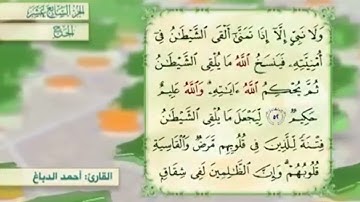 الجزء السابع عشر
الحج
وَلَا نَبِىٍّ إِلَّآ إِذَا تَمَنَّىٰٓ أَلْقَى ٱلشَّيْطَٰنُ فِىٓ
أُمْنِيَّتِهِۦ فَيَنسَخُ ٱللَّهُ مَا يُلْقِى ٱلشَّيْطَٰنُ
ثُمَّ يُحْكِمُ ٱللَّهُ ءَايَٰتِهِۦ ۗ وَٱللَّهُ عَلِيمٌ
حَكِيمٌ ٥٢ لِّيَجْعَلَ مَا يُلْقِى ٱلشَّيْطَٰنُ
فِتْنَةً لِّلَّذِينَ فِى قُلُوبِهِم مَّرَضٌ وَٱلْقَاسِيَةِ
قُلُوبُهُمْ ۗ وَإِنَّ ٱلظَّٰلِمِينَ لَفِى شِقَاقٍۭ
القارئ: أحمد الدباغ